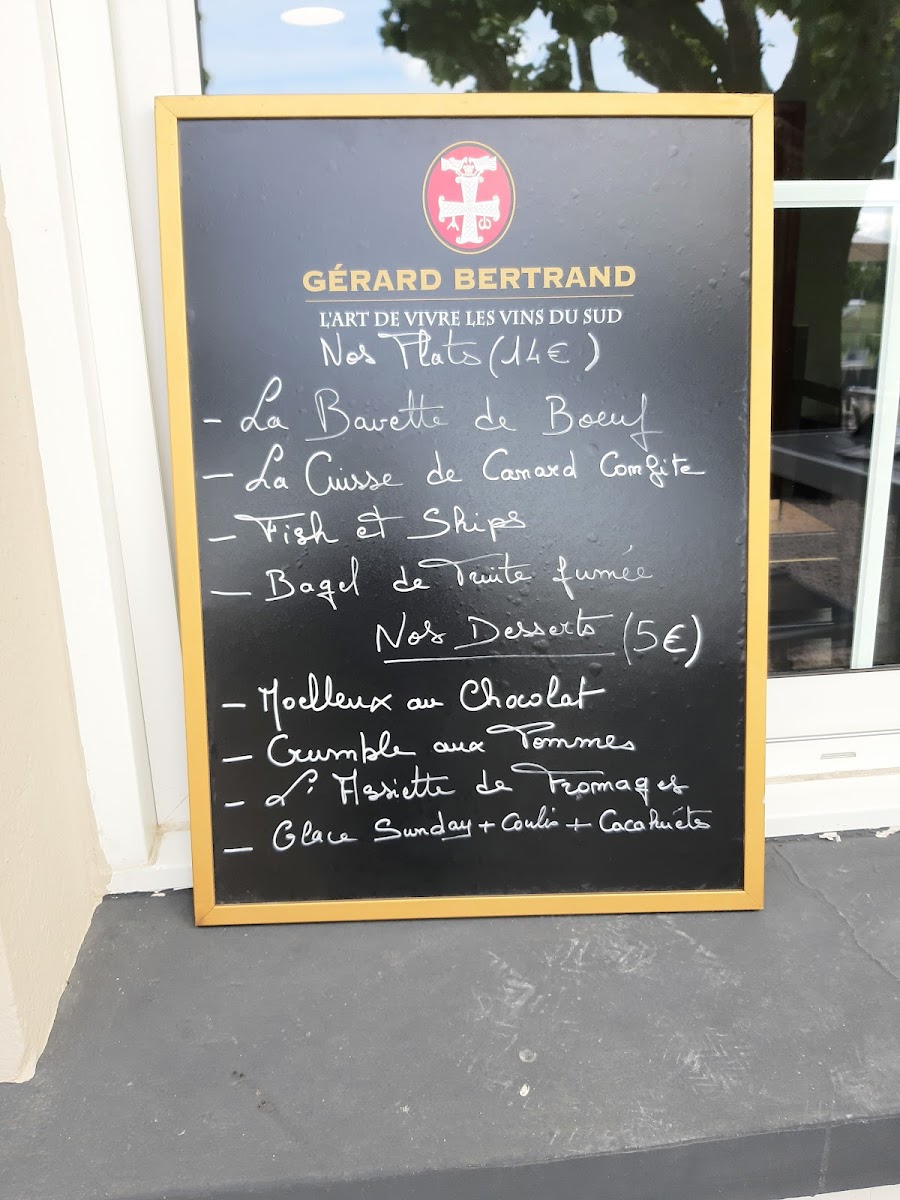 GÉRARD BERTRAND
L'ART DE VIVRE LES VINS DU SUD
Nos Plats (14€)
- La Bavette de Boeuf
- La Cuisse de Canard Confite
- Fish et Ships
- Bagel de Truite fumée
Nos Desserts (5€)
- Moelleux au Chocolat
- Crumble aux Pommes
- L'Assiette de Fromages
- Glace Sunday + Coulis + Cacahuéts